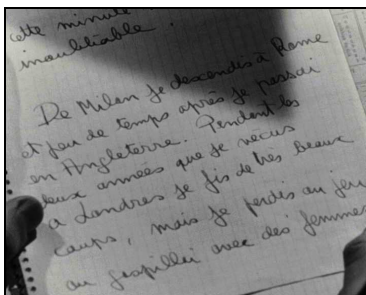 cette minute
inoubliable.
De Milan je descendis à Rome
et peu de temps après je passai
en Angleterre. Pendant les
deux années que je vécus
à Londres je fis de très beaux
coups, mais je perdis au jeu
ou gaspillai avec des femmes